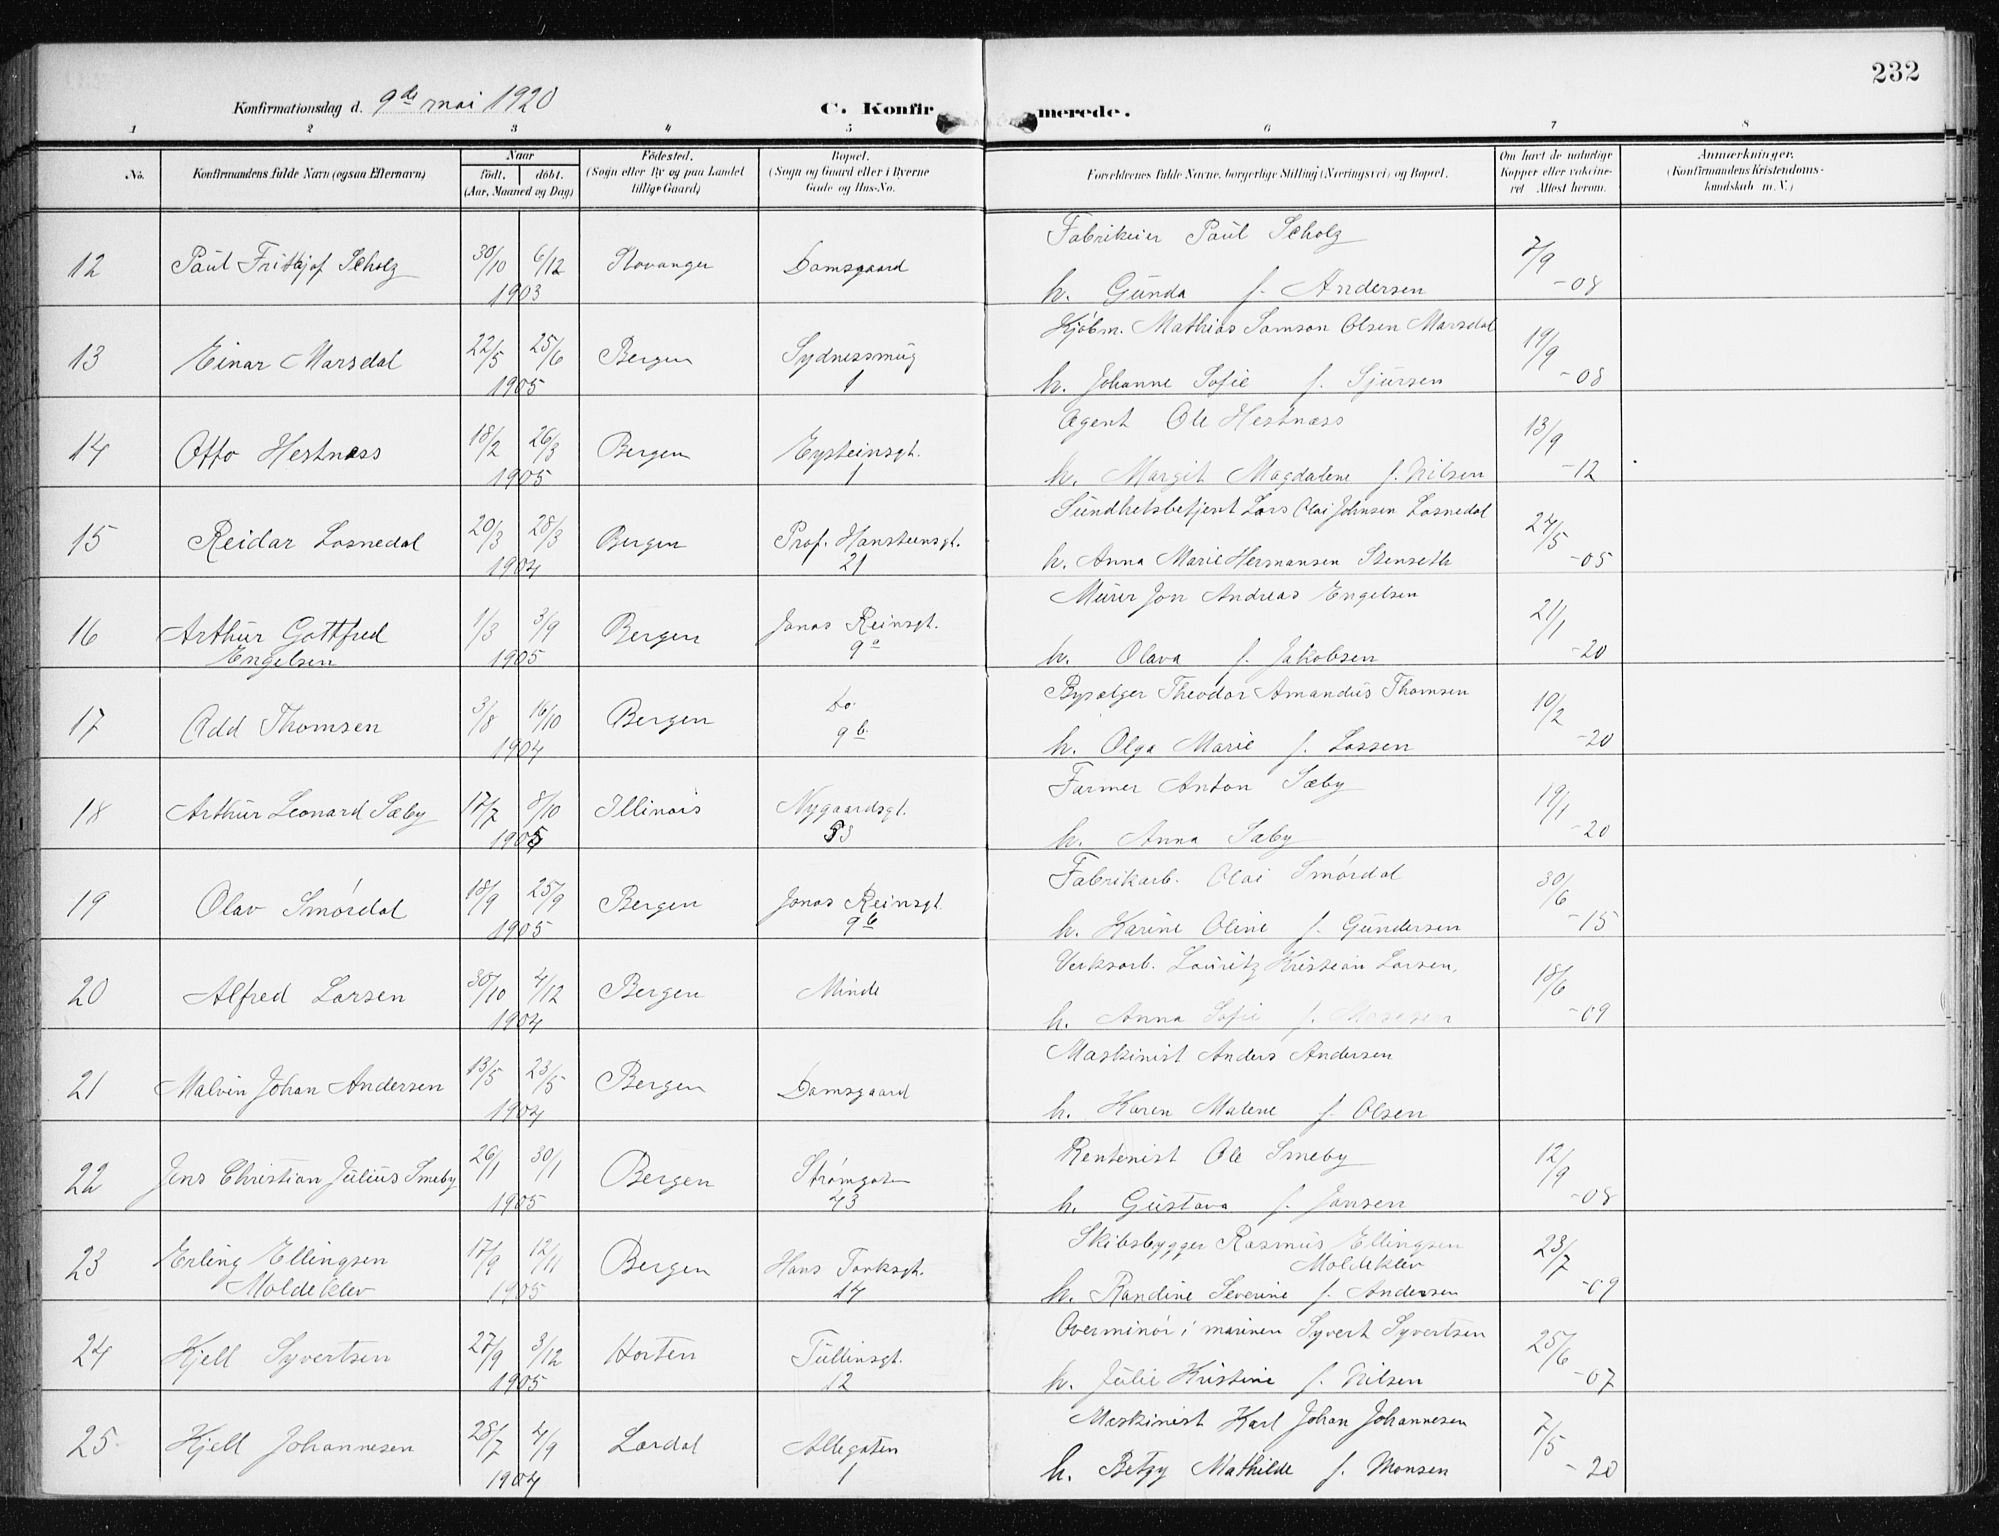 232
Konfirmationsdag d. 9de mai 1920 C. Konfirmerede.
1 2 3 4 5 6 7 8
No. Konfirmandens fulde Navn (ogsaa Efternavn) Naar født. døbt. (Aar, Maaned og Dag) Fødested. (Sogn eller By og paa Landet tillige Gaard) Bopæl. (Sogn og Gaard eller i Byerne Gade og Hus-No. Forældrenes fulde Navne, borgerlige Stilling (Næringsvei) og Bopæl. Om havt de naturlige Kopper eller vaccineret. Attest herom. Anmærkninger. (Konfirmandens Kristendomskundskab m. V.)
12 Paul Frithjof Scholz 30/10 6/12 1903 Stavanger Damsgaard Fabrikeier Paul Scholz
h. Gunda f. Andersen 7/9 -08
13 Einar Marsdal 22/5 25/6 1905 Bergen Sydnessmug 1 Kjøbm. Mathias Samson Olsen Marsdal
h. Johanne Sofie f. Sjursen 19/9 -08
14 Otto Hestnæss 18/2 26/3 1905 Bergen Eysteinsgt. 1 Agent Ole Hestnæss
h. Margit Magdalene f. Nilsen 13/9 -12
15 Reidar Losnedal 20/3 28/3 1904 Bergen Prof. Hansteensgt. 21 Sundhetsbetjent Lars Olai Johnsen Losnedal
h. Anna Marie Hermansen Stenseth 24/5 -05
16 Arthur Gottfred Engelsen 1/3 3/9 1905 Bergen Jonas Reinsgt. 9a Murer Jon Andreas Engelsen
h. Olava f. Jakobsen 21/1 -20
17 Odd Thomsen 3/8 16/10 1904 Bergen Do. 9b. Bysælger Theodor Amandus Thomsen
h. Olga Marie f. Lassen 10/2 -20
18 Arthur Leonard Sæby 17/7 8/10 1905 Illinois Nygaardsgt. 53 Farmer Anton Sæby
h. Anna Sæby 19/1 -20
19 Olav Smørdal 18/9 25/9 1905 Bergen Jonas Reinsgt. 9b Fabrikarb. Olai Smørdal
h. Karine Oline f. Gundersen 30/6 -15
20 Alfred Larsen 30/10 4/12 1904 Bergen Minde Verksarb. Lauritz Kristian Larsen,
h. Anna Sofie f. 18/6 -09
21 Malvin Johan Andersen 13/5 23/5 1904 Bergen Damsgaard Maskinist Anders Andersen
h. Karen Malene f. Olsen
22 Jens Christian Julius Smeby 26/1 30/1 1905 Bergen Strømgaten 43 Rentenist Ole Smeby
h. Gustava f. Jansen 12/9 -08
23 Erling Ellingsen Moldeklev 17/9 12/11 1905 Bergen Hans Tanksgt. 14 Skibsbygger Rasmus Ellingsen Moldeklev
h. Randine Severine f. Andersen 23/7 -09
24 Kjell Syvertsen 27/9 3/12 1905 Horten Tullinsgt. 12 Overminør i marinen Syvert Syvertsen
h. Julie Kristine f. Nilsen 25/6 -07
25 Kjell Johannesen 28/7 4/9 1904 Lærdal Allegaten 1 Maskinist Karl Johan Johannesen
h. Betzy Mathilde f. Monsen 7/5 -20